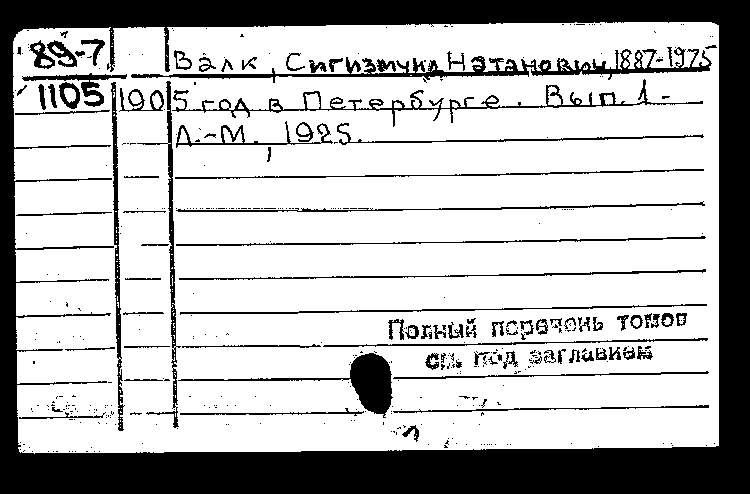 89-7 Валк, Сигизмунд Натанович, 1887-1975
1105 1905 год в Петербурге. Вып. 1-
Л.-М., 1925.
Полный перечень томов
см. под заглавием